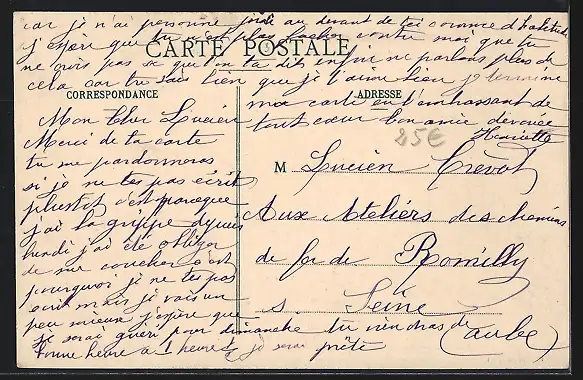 CARTE POSTALE
CORRESPONDANCE
ADRESSE
Mon Cher Lucien
Merci de ta carte
tu me pardonneras
si je ne tes pas écrit
plustot c'est parceque
j'ai la grippe depuis
lundi j'ai été obliger
de me coucher c'est
pourquoi je ne tes pas
écrit mais je vais un
peu mieux j'espère que
je serai guéri pour dimanche tu viendras de
bonne heure à 1 heure je serai prête
car je n'ai personne au devant de toi comme d'habitude
j'espère que tu n'est plus facher contre moi que tu
ne crois pas se que on ta dit enfin ne parlons plus de
cela car tu sais bien que je t'aime bien je termine
ma carte en t'embrassant de
tout cœur ton amie dévouée
Henriette
25€
M Lucien Crévot
Aux Ateliers des chemins
de fer de Romilly
s. Seine
(aube)